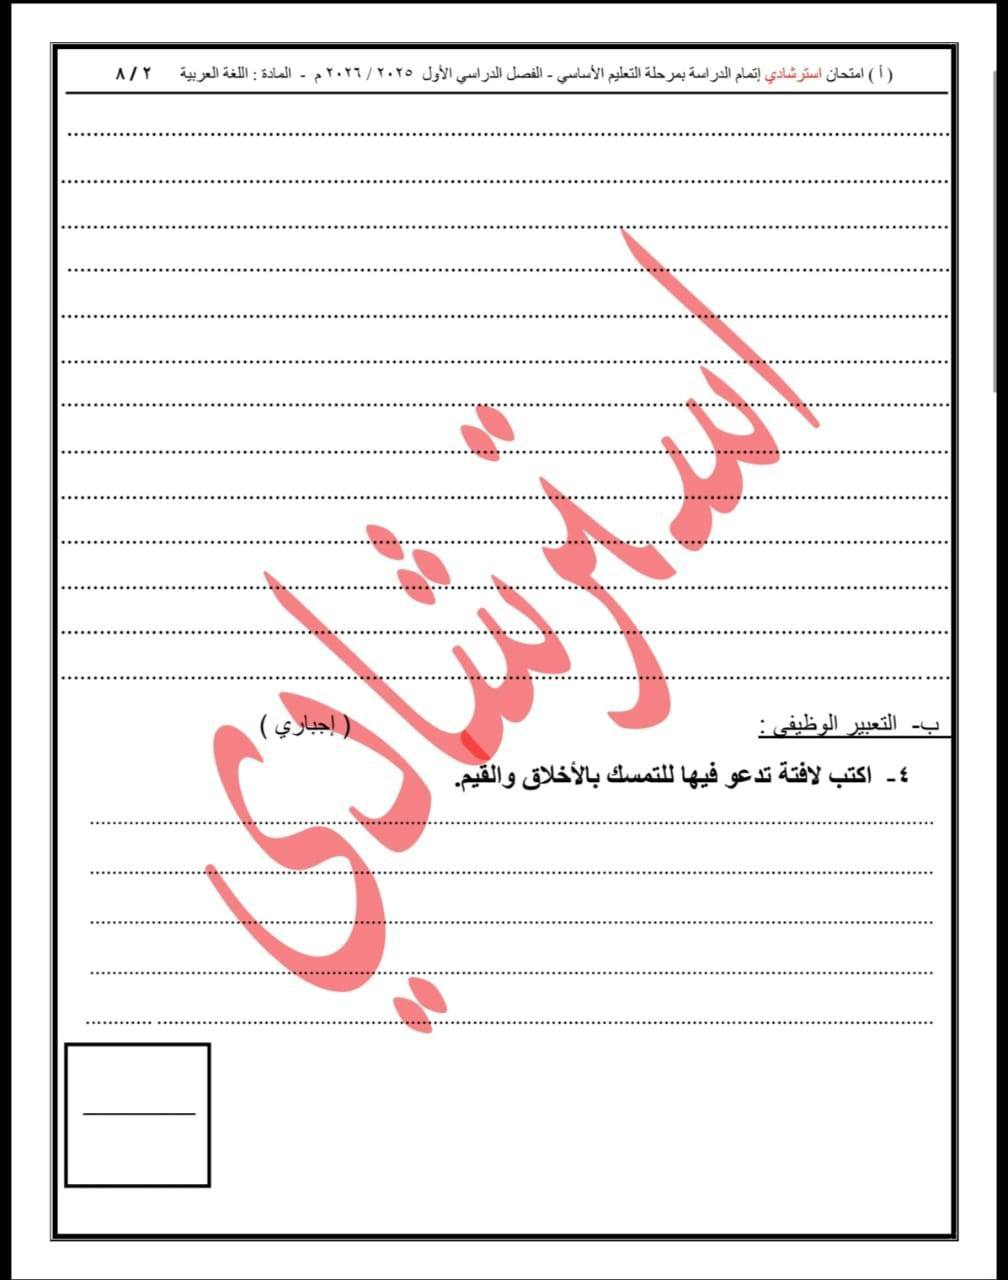 ( أ ) امتحان استرشادي إتمام الدراسة بمرحلة التعليم الأساسي - الفصل الدراسي الأول ٢٠٢٥ / ٢٠٢٦ م - المادة : اللغة العربية ٢ / ٨
استرشادي
ب- التعبير الوظيفي : ( إجباري )
٤- اكتب لافتة تدعو فيها للتمسك بالأخلاق والقيم.